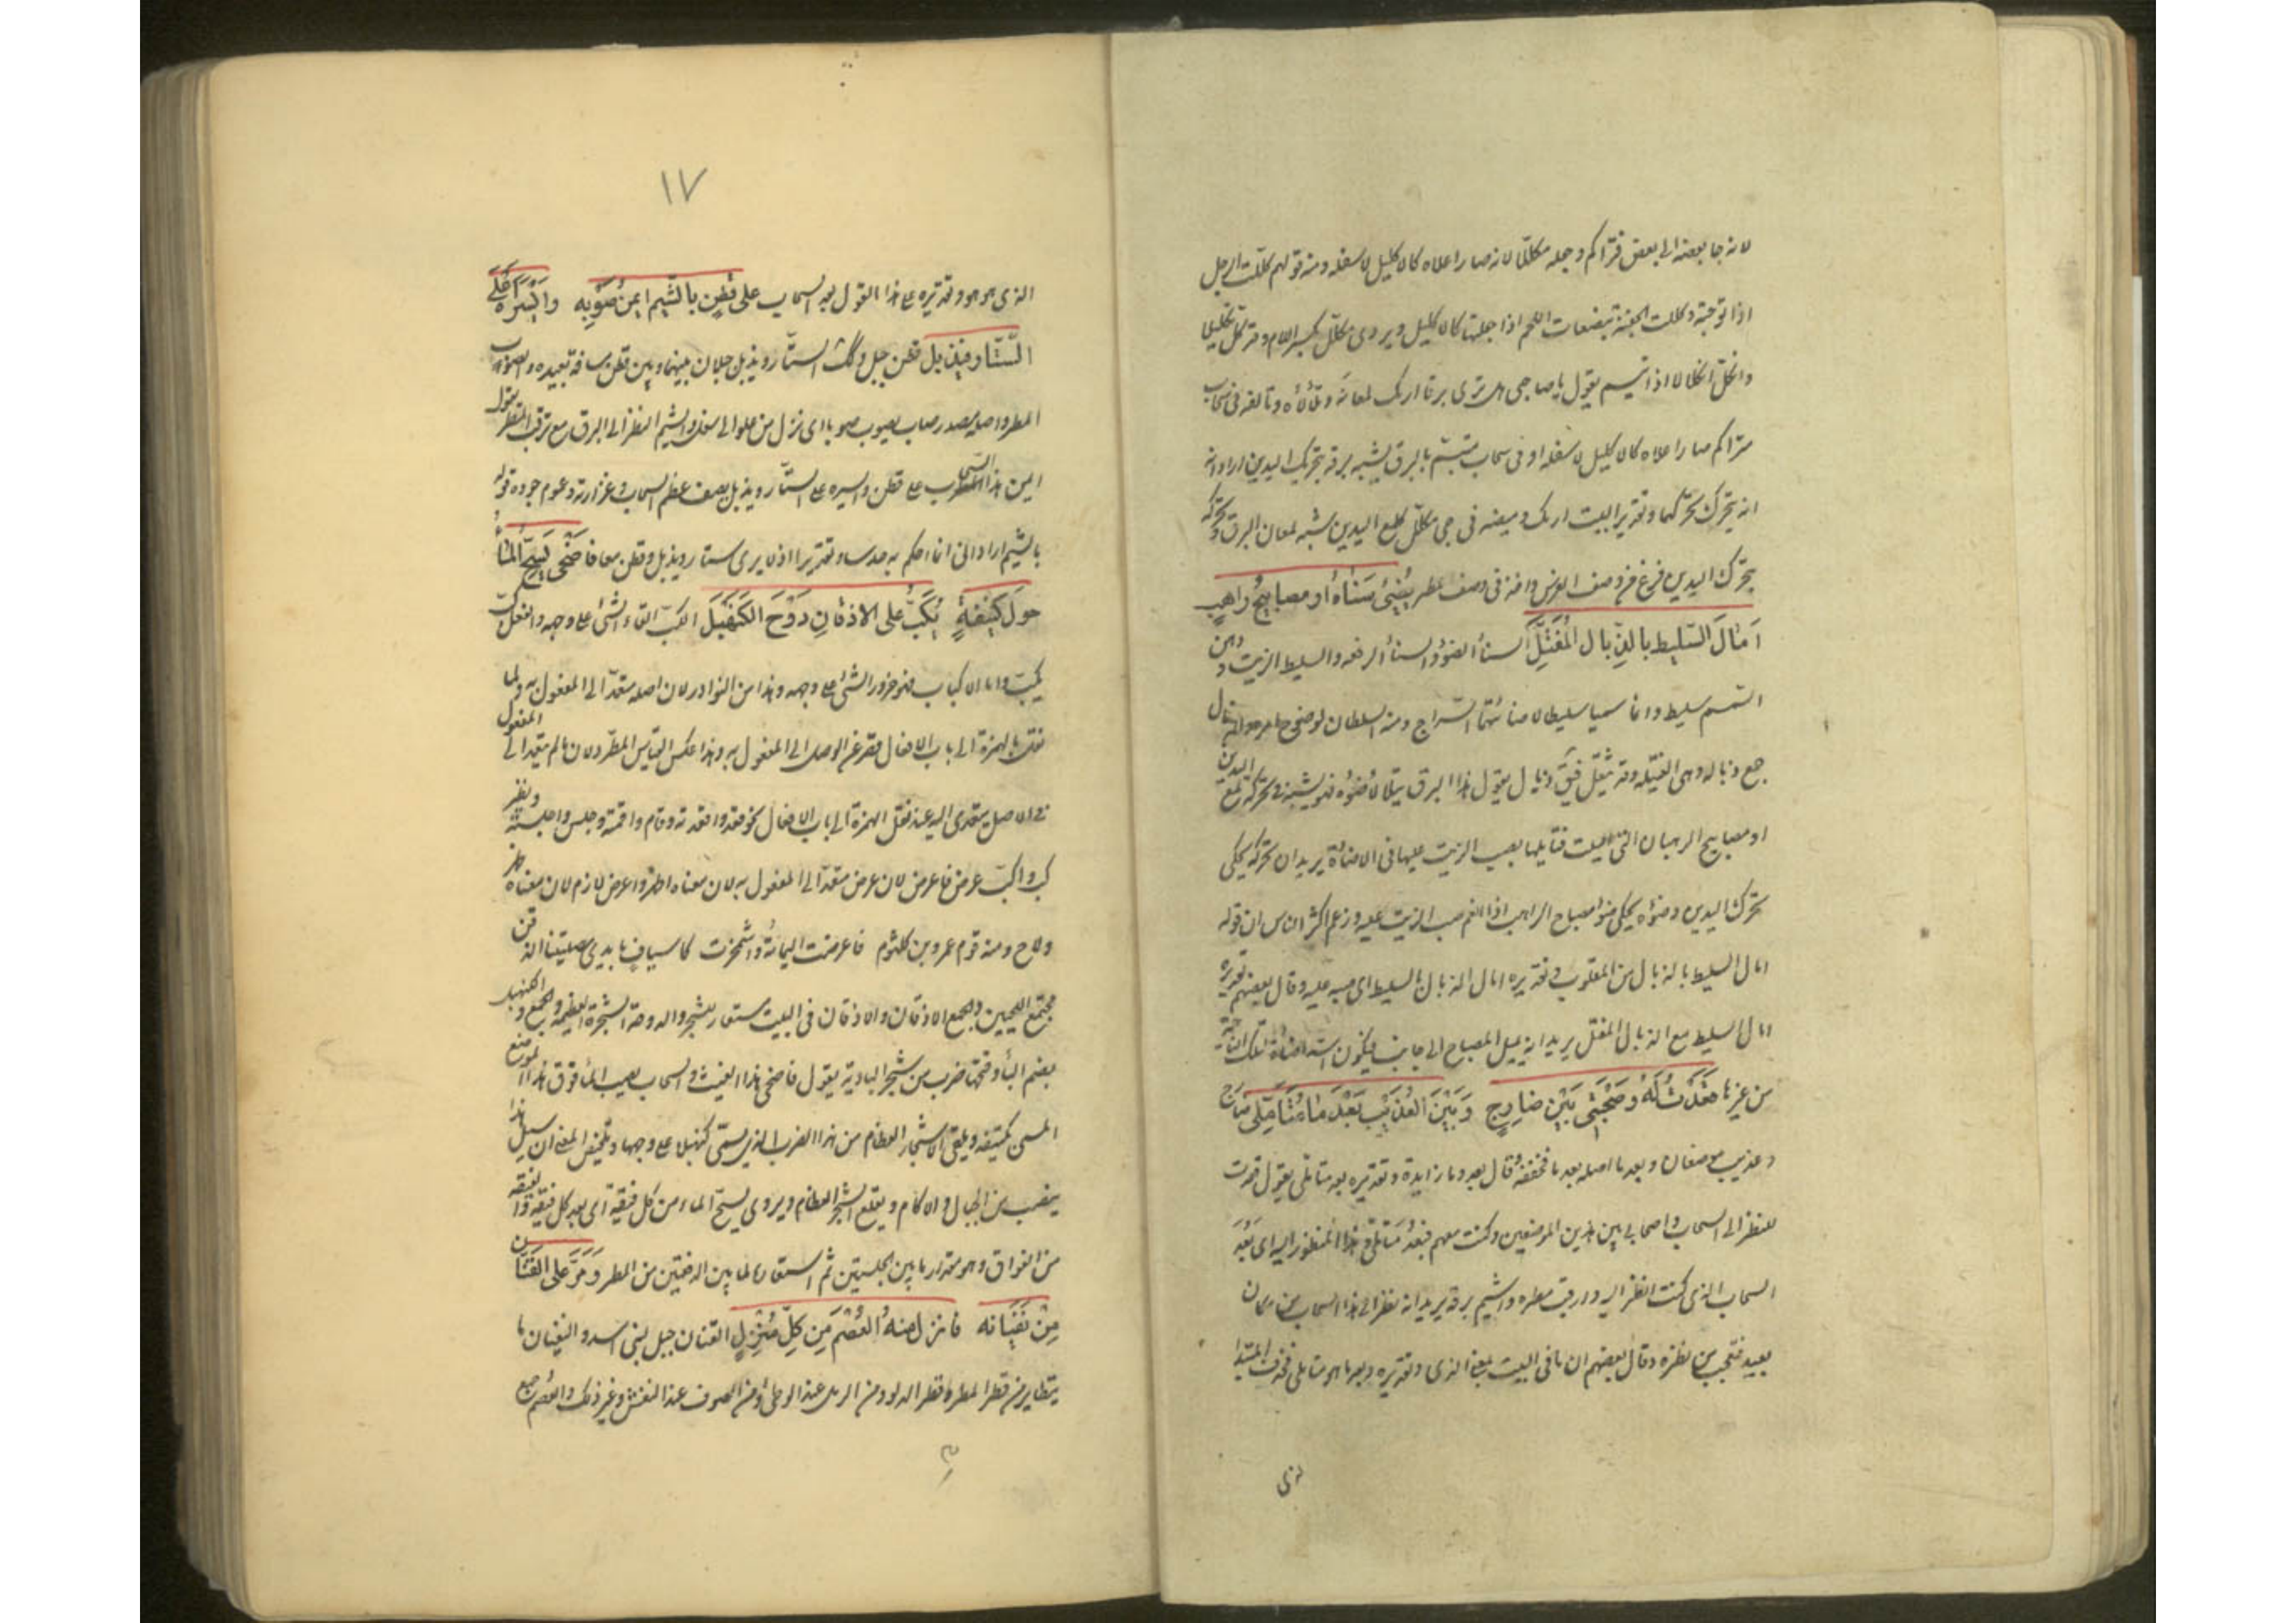 لانه جا بعضه الى بعض فتراكم وجعله مكللا لانه صار اعلاه كالاكليل لاسفله ومنه قولهم كللت الرجل
اذا توجته وكللت الجفنة ببضعات اللحم اذا جعلتها كالاكليل ويروى مكلل بكسر اللام وقد كلل تكليلا
وانكل انكلالا اذا تبسم يقول يا صاحبى هل ترى برقا اريك لمعانه وتلألأه وتألقه فى سحاب
متراكم صار اعلاه كالاكليل لاسفله او فى سحاب متبسم بالبرق يشبه برقه بتحريك اليدين اراد انه
انه يتحرك تحركهما وتقدير البيت اريك وميضه فى حبى مكلل كلمع اليدين شبه لمعان البرق وتحركه
بتحرك اليدين فرغ من وصف الفرس واخذ فى وصف المطر يُضِئُ سَنَاهُ او مصابيحُ راهبٍ
اَمَالَ السَّلِيط بالذُّبال المُفَتَّلِ السنأ الضؤ والسنأ الرفعه والسليط الزيت ودهن
السمسم سليط وانما سميا سليطا لاضائتهما السراج ومنه السلطان لوضوح امره والذبال
جمع ذباله وهى الفتيله وقد يثقل فيق ذبّال يقول هذا البرق يتلألأ ضوؤه فهو يشبه فى تحركه لمع اليدين
او مصابيح الرهبان التى اميلت فتايلها بصب الزيت عليها فى الاضاءة يريد ان تحركه يحكى
تحرك اليدين وضوءه يحكى ضوء مصباح الراهب اذا انعم صب الزيت عليه وزعم اكثر الناس ان قوله
امال السليط بالذبال من المقلوب وتقديره امال الذبال بالسليط اى صبه عليه وقال بعضهم تقديره
امال السليط مع الذبال المفتل يريد انه يميل المصباح الى جانب فيكون اشد اضاءة لتلك الناحية
من غيرها قَعَدْتُ لَهُ وَصُحْبَتِى بَيْنَ ضارِجٍ وَبَيْنَ العُذَيْبِ بَعْدَ مَا مُتَأَمَّلِى ضارج
وعذيب موضعان وبعد ما اصله بعد ما فخففه وقال بعد وما زايدة وتقديره بعد متأملى يقول قعدت
للنظر الى السحاب واصحابى بين هذين الموضعين وكنت معهم فبعد متأملى وهذا المنظور اليه اى بَعُدَ
السحاب الذى كنت انظر اليه وارقب مطره واشيم برقه يريد انه نظر الى هذا السحاب من مكان
بعيد فتعجب من نظره وقال بعضهم ان ما فى البيت بمعنى الذى وتقديره وبعد ما هو متأملى فحذف المبتدا
لذى
١٧
الذى هو هو وتقديره على هذا القول بعد السحاب على قَطَنٍ بالشَّيْم ايمنُ صَوْبِهِ وايْسَرُهُ عَلَى
السِّتَار فيذبل قطن جبل وكذلك الستار ويذبل جبلان بينهما وبين قطن مسافة بعيده والصوب
المطر واصله مصدر صاب يصوب صوبا اى نزل من علو الى سفل والشيم النظر الى البرق مع ترقب المطر يقول
ايمن هذا السحاب على قطن وايسره على الستار ويذبل يصف عظم السحاب وغزارته وعموم جوده قوله
بالشيم اراد انى انما احكم به حدسا وتقديرا اذ لا يرى ستار ويذبل وقطن معا فَاَضْحَى يَسُحُّ المَاءُ
حَولَ كُتَيْفَةٍ يُكِبُّ على الاذقانِ دَوْحَ الكَنَهْبَلِ الكب القاء الشئ على وجهه والفعل كبّ
يكبّ واما الاكباب فهو خرور الشئ على وجهه وهذا من النوادر لان اصله متعد الى المفعول به ولما
نقل بالهمزة الى باب الافعال قصر عن الوصل الى المفعول به وهذا عكس القياس المطرد لان ما لم يتعد الى المفعول
فى الاصل يتعدى اليه عند نقل الهمزة الى باب الافعال نحو قعد واقعدته وقام واقمته وجلس واجلسته ونظير
كب واكب عرض فاعرض لان عرض متعد الى المفعول به لان معناه اظهر واعرض لازم لان معناه ظهر
ولاح ومنه قوم عمرو بن كلثوم فاعرضت اليمامة واشمخرت كاسياف بايدى مصلتينا الذقن
مجتمع اللحيين والجمع الاذقان والاذقان فى البيت مستعار للشجر والدوحة الشجرة العظيمه والجمع دوح والكنهبل
بضم البأ وفتحها ضرب من شجر البادية يقول فاضحى هذا الغيث والسحاب يصب المأ فوق هذا الموضع
المسمى بكتيفه ويلقى الاشجار العظام من هذا الضرب الذى يسمى كنهبلا على وجهها وتلخيص المعنى ان سيل هذا
ينصب من الجبال والاكام ويقلع الشجر العظام ويروى يسح الماء من كل فيقة اى بعد كل فيقة والفيقه
من الفواق وهو مقدار ما بين الحلبتين ثم استعاره لما بين الدفعتين من المطر وَمَرَّ على القَنَانِ
مِنْ نَفَيَانِهِ فانزل منهُ العُصْمَ مِنْ كلّ مُنْزِلٍ القنان جبل لبنى اسد والنفيان ما
يتطاير من قطر المطر وقطر الدلو ومن الرمل عند الوطئ ومن الصوف عند النفش وغير ذلك والعصم جمع